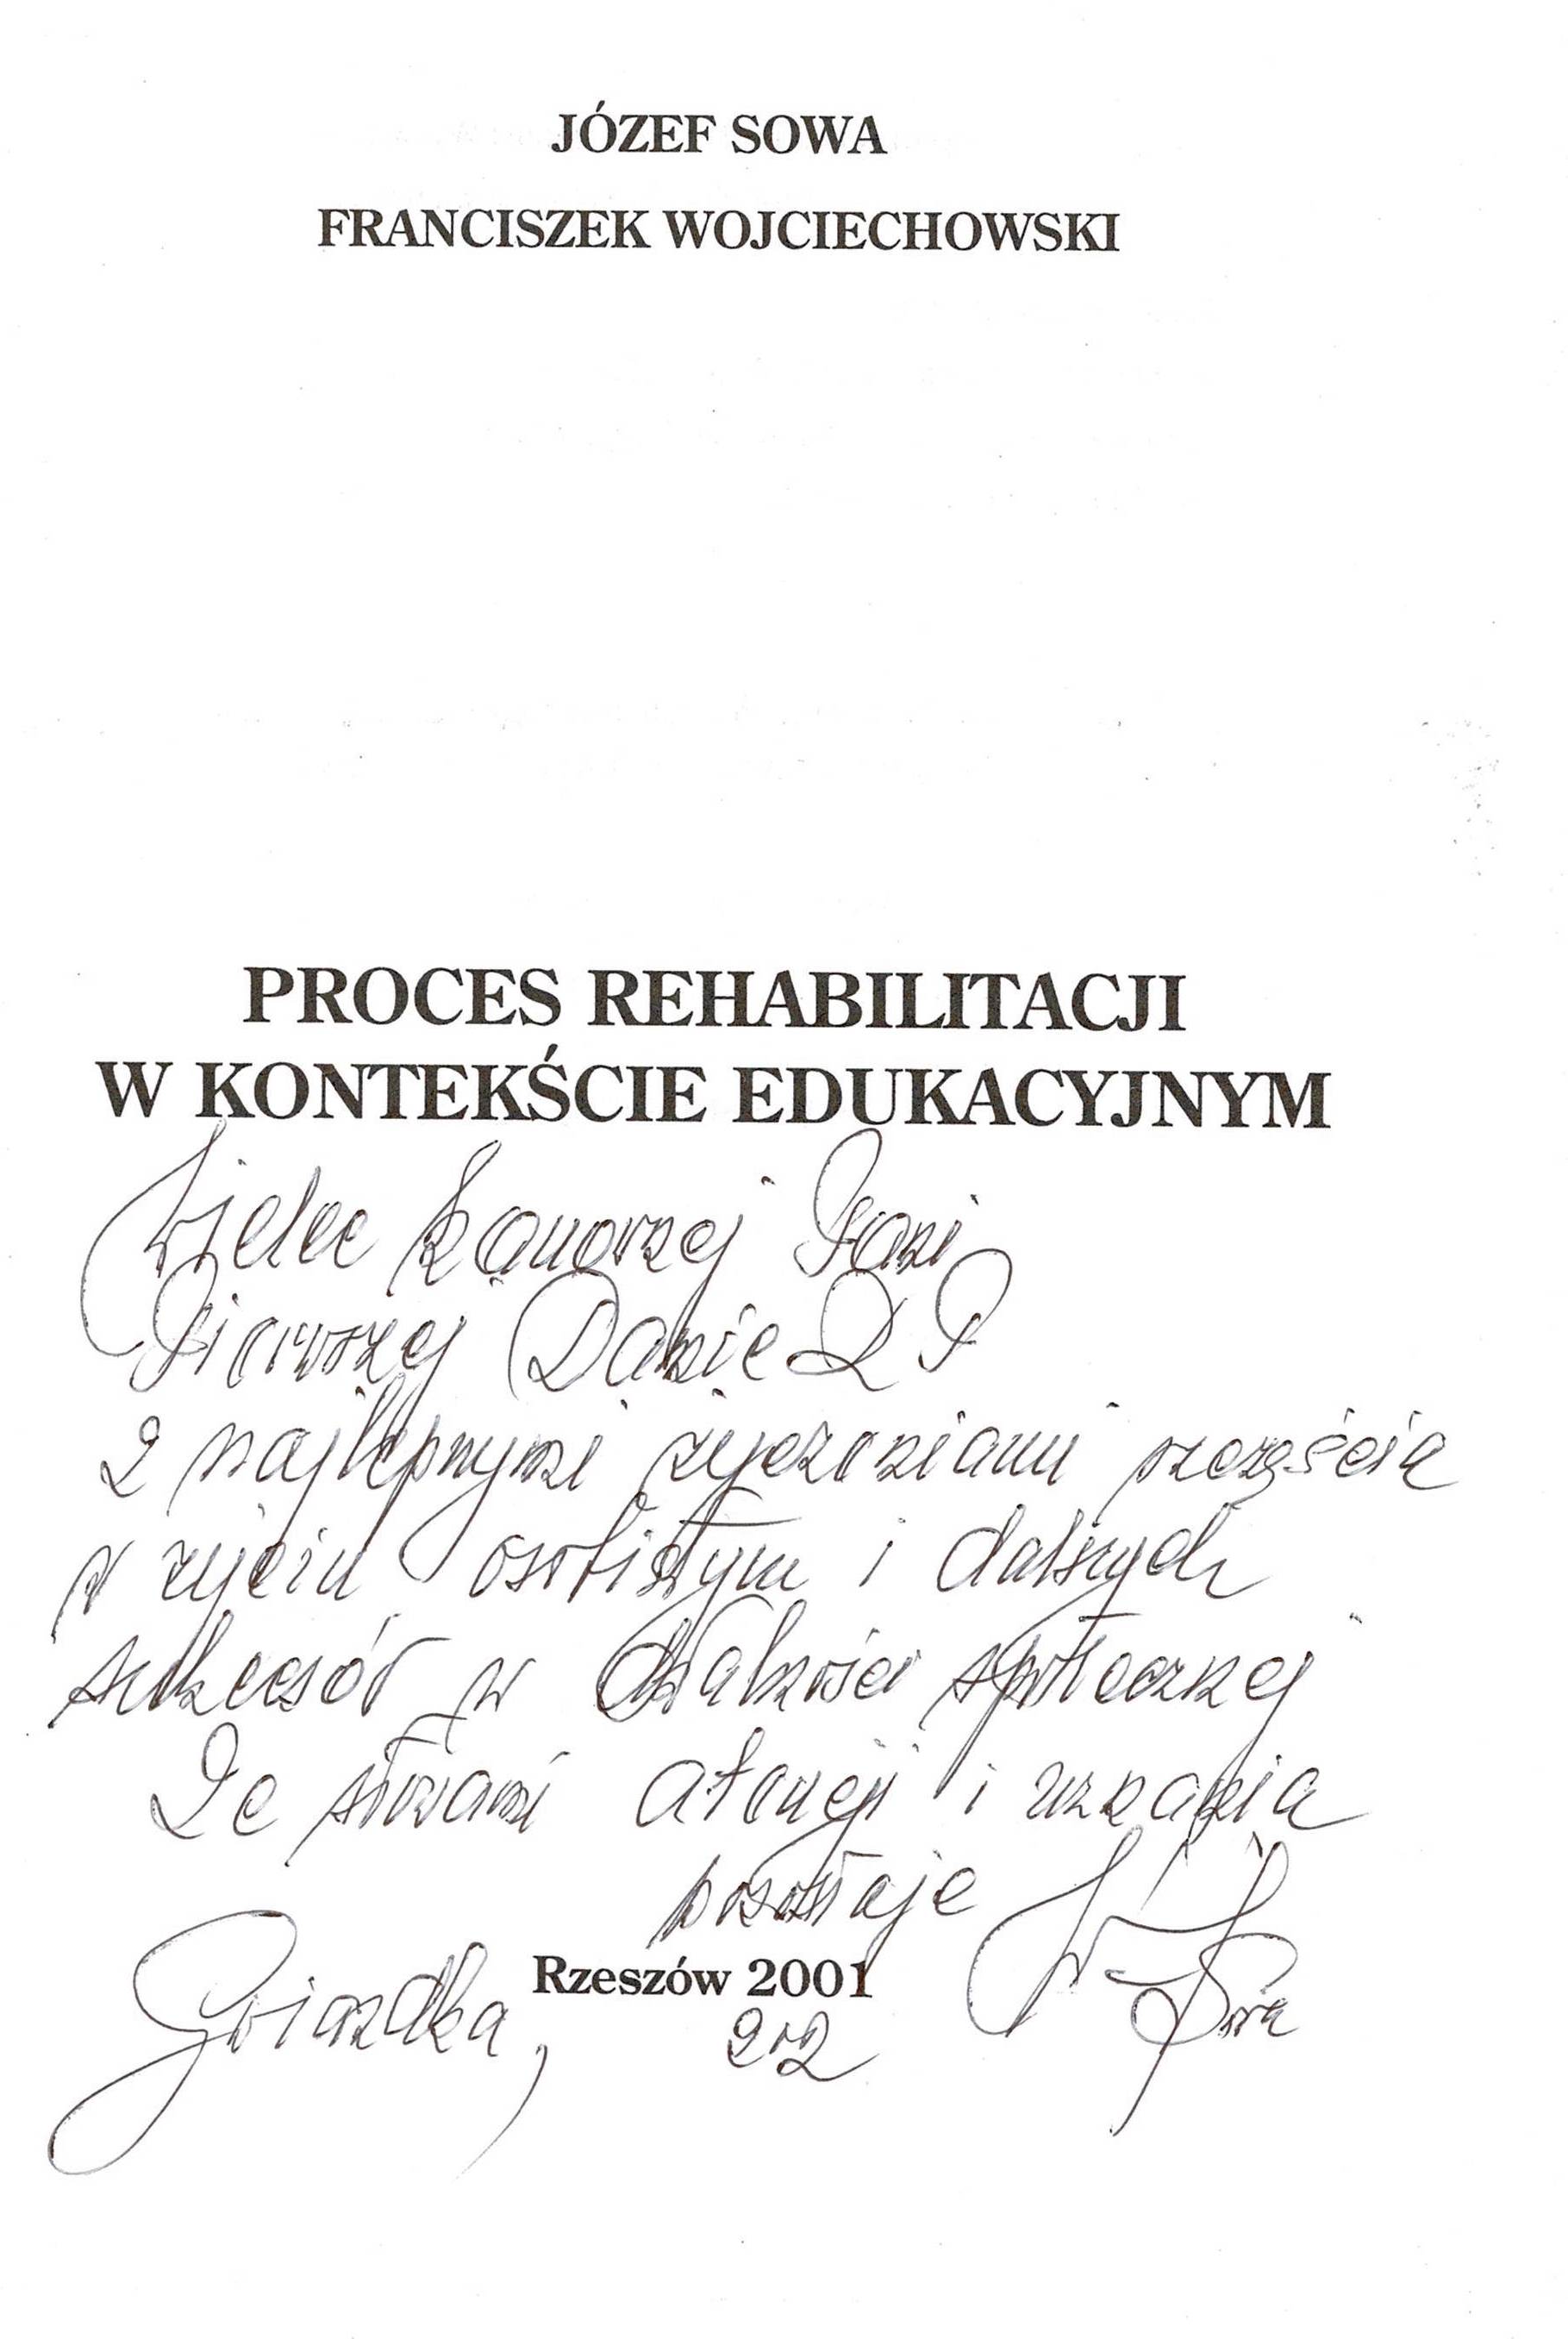 JÓZEF SOWA
FRANCISZEK WOJCIECHOWSKI
PROCES REHABILITACJI
W KONTEKŚCIE EDUKACYJNYM
Wielce Szanownej Pani
Pierwszej Damie RP
z najlepszymi życzeniami szczęścia
w życiu osobistym i dalszych
sukcesów w działalności społecznej
Ze słowami atencji i uznania
pozostaje
Rzeszów 2001
Gwiazdka, 2002
Sowa